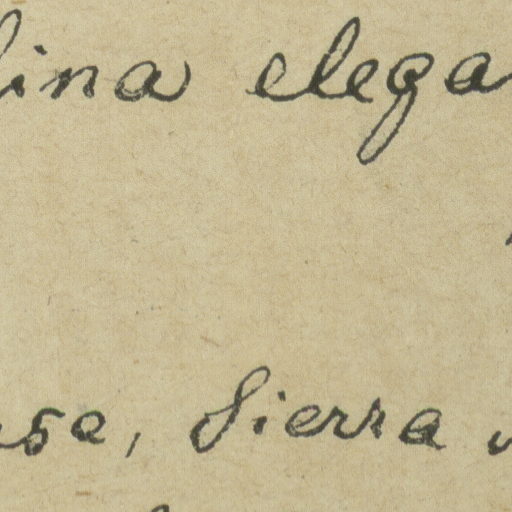 lina elega
Sierra